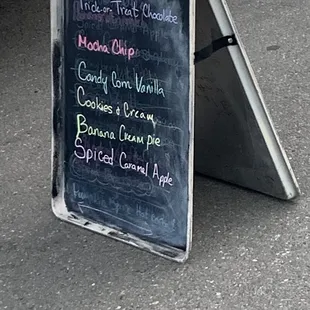 Trick-or-Treat Chocolate
Mocha Chip
Candy Corn Vanilla
Cookies & Cream
Banana Cream pie
Spiced Caramel Apple